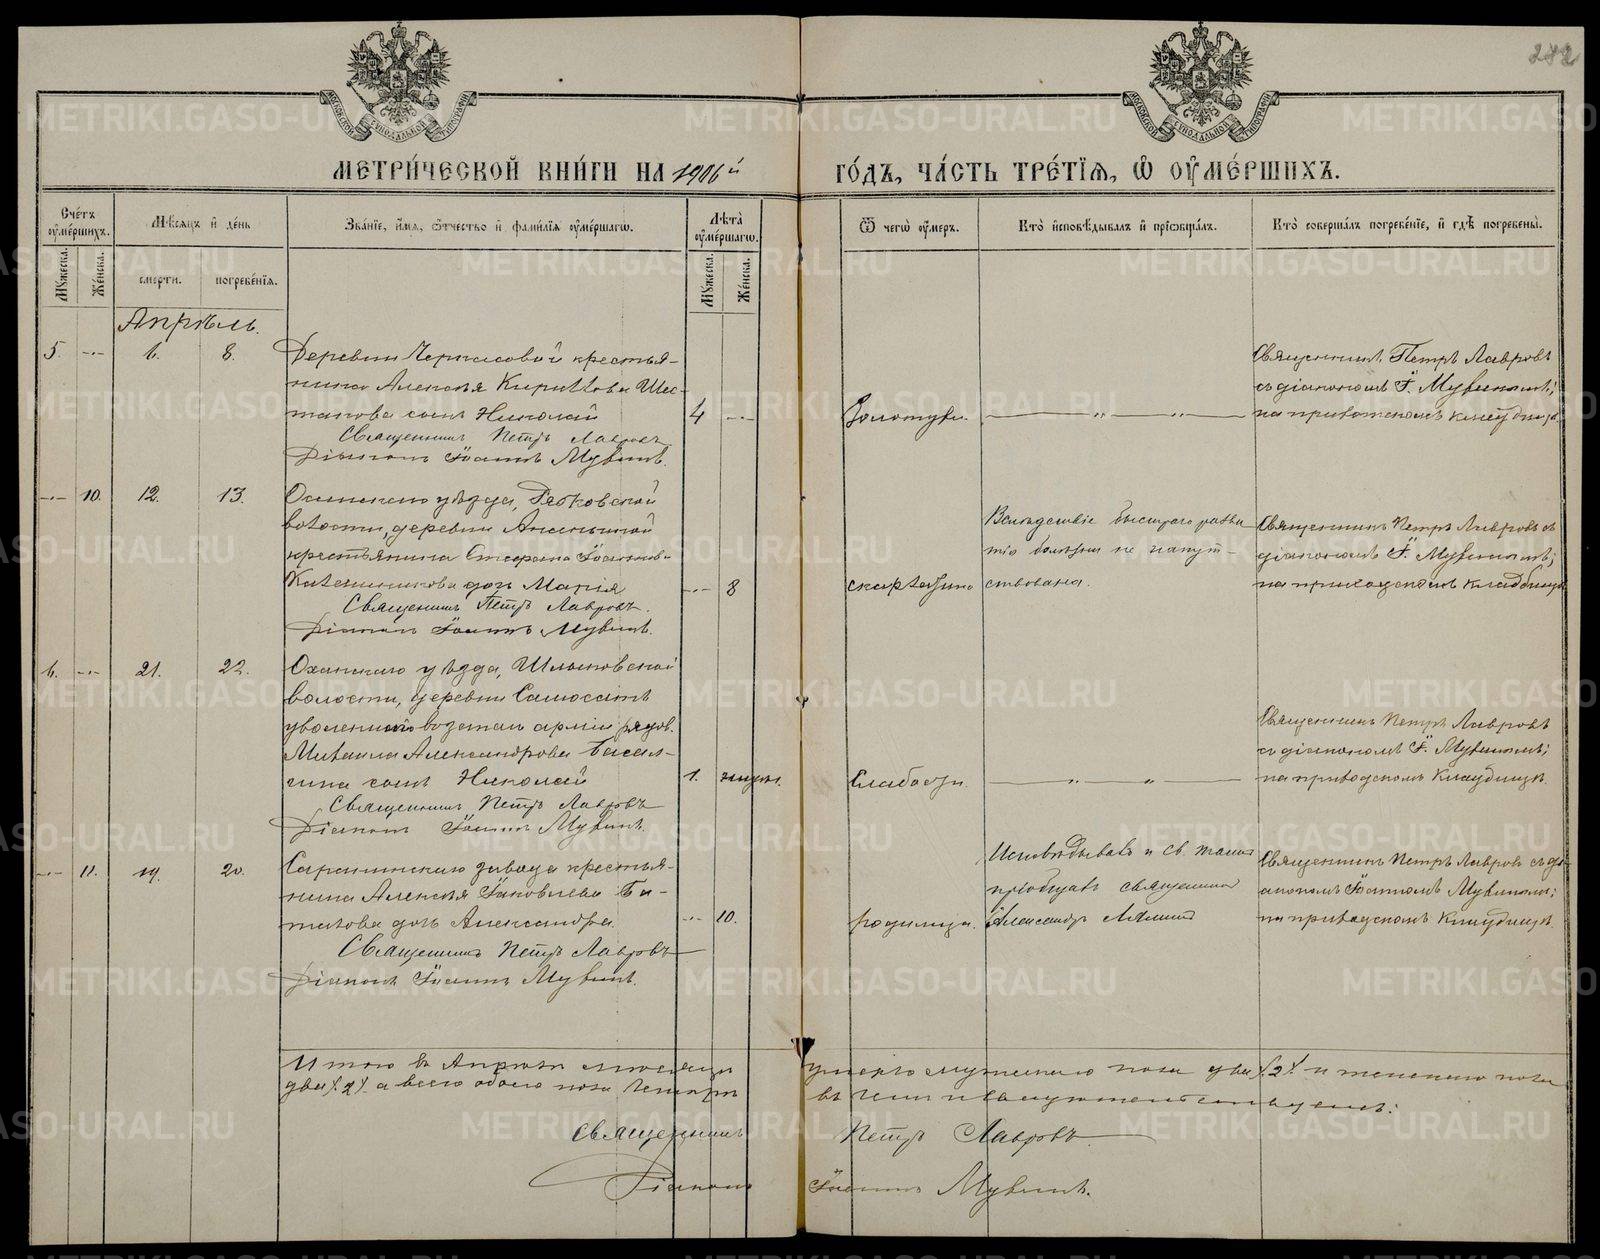 282
МЕТРИ́ЧЕСКОЙ КНИ́ГИ НА 1906й ГО́ДЪ, ЧА́СТЬ ТРЕ́ТІѦ, Ѡ҆ ОУ҆МЕ́РШИХЪ.
Сче́тъ оу҆ме́ршихъ.
Мѣ́сяцъ и҆ де́нь
Зва́ніе, и҆́мя, ѻ҆́тчество и҆ фами́лія оу҆ме́ршагѡ.
Лѣ́та оу҆ме́ршагѡ.
Ѿ чегѡ̀ оу҆́меръ.
Кто̀ и҆сповѣ́дывалъ и҆ прїѡбща́лъ.
Кто̀ соверша́лъ погребе́ніе, и҆ гдѣ̀ погребены̀.
Му́жеска. Же́нска. сме́рти. погребе́нія. Му́жеска. Же́нска.
Апрѣль.
5. -"- 6. 8. Деревни Черкасовой крестья-
нина Алексѣя Кириллова Шес-
такова сынъ Николай 4 -"-
Священникъ Петръ Лавровъ
Діаконъ Іоаннъ Мувинъ.
Золотухи. " "
Священникъ Петръ Лавровъ
съ діакономъ І. Мувинымъ;
на приходскомъ кладбищѣ.
-"- 10. 12. 13. Осинскаго уѣзда,
волости, деревни Ананьиной
крестьянина Стефана Іоаннова
дочь Марія -"- 8
Священникъ Петръ Лавровъ.
Діаконъ Іоаннъ Мувинъ.
скарлатина
Вслѣдствіе быстраго разви
тія болѣзни не напут-
ствована.
Священникъ Петръ Лавровъ съ
діакономъ І. Мувинымъ;
на приходскомъ кладбищѣ
6. -"- 21. 22. Оханскаго уѣзда,
волости, деревни
уволенного въ запасъ арміи рядов.
Михаила Александрова
сынъ Николай 1.
Священникъ Петръ Лавровъ
Діаконъ Іоаннъ Мувинъ.
Слабости. " "
Священникъ Петръ Лавровъ
съ діакономъ І. Мувинымъ;
на приходскомъ кладбищѣ.
-"- 11. 19. 20. Саранинскаго завода крестья-
нина Алексѣя Іаковлева
дочь Александра. -"- 10.
Священникъ Петръ Лавровъ
Діаконъ Іоаннъ Мувинъ.
родимца.
Исповѣдывалъ и св. таинъ
пріобщалъ священникъ
Александръ
Священникъ Петръ Лавровъ съ ді-
акономъ Іоанномъ Мувинымъ;
на приходскомъ кладбищѣ.
Итого въ Апрѣлѣ мѣсяцѣ умерло мужескаго пола два /2/ и женскаго пола
два /2/ а всего обоего пола четыре въ чемъ и свидѣтельствуемъ:
Священникъ Петръ Лавровъ
Діаконъ Іоаннъ Мувинъ.
METRIKI.GASO-URAL.RU